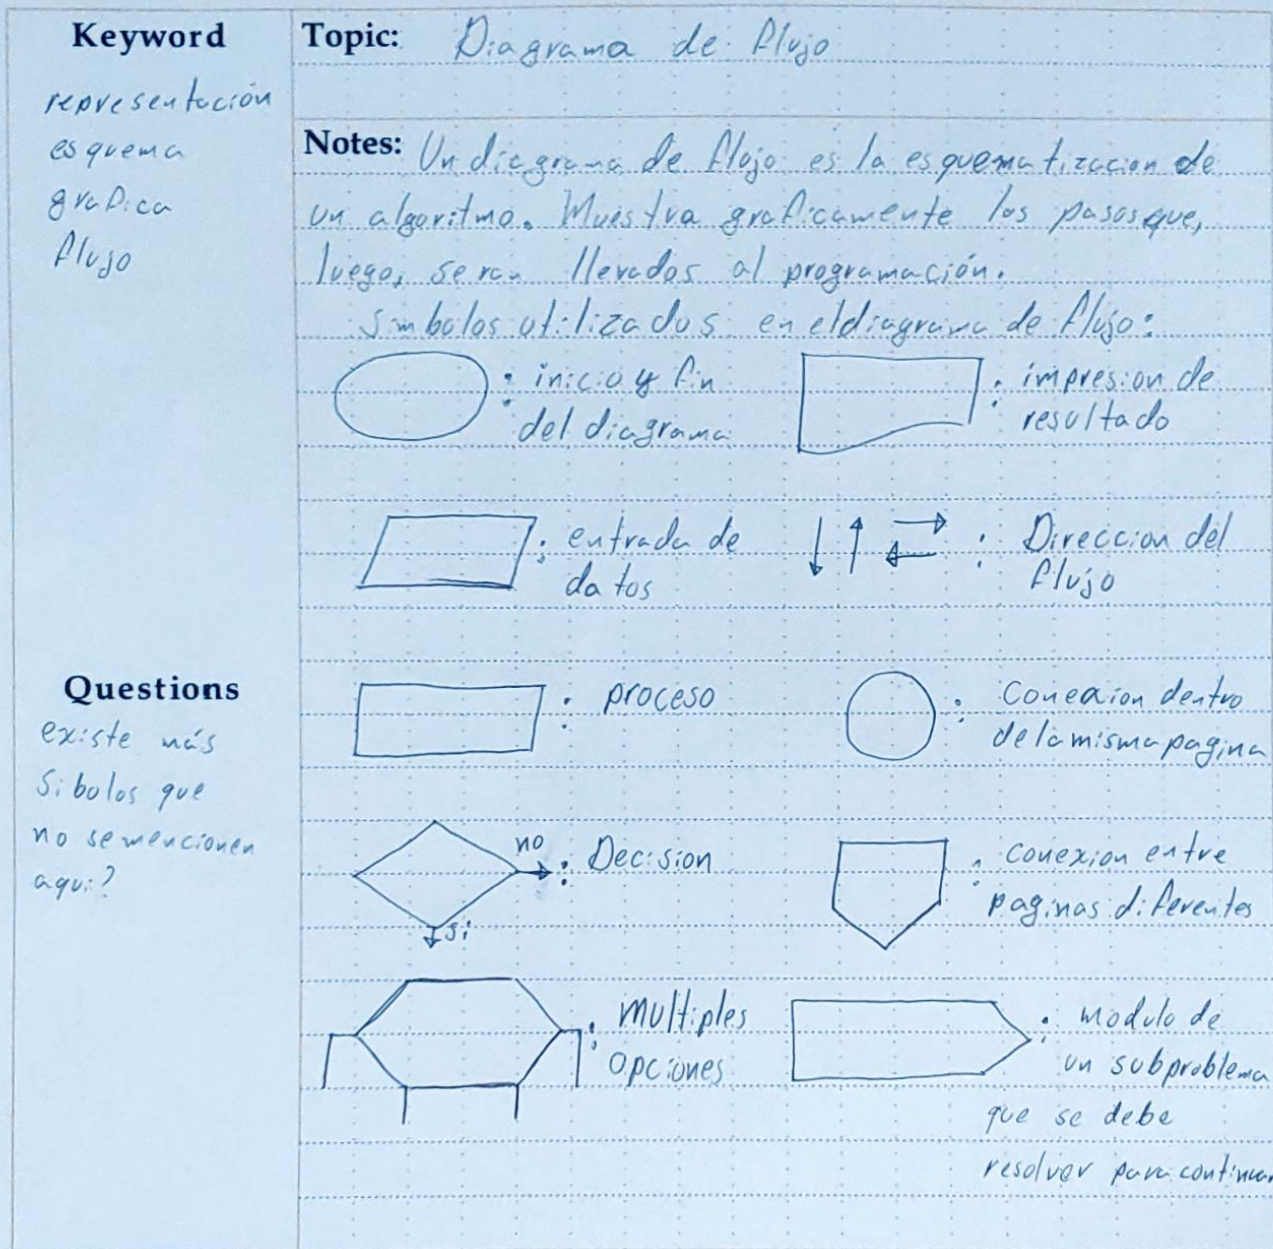 Keyword
representación
esquema
grafica
flujo
Topic: Diagrama de flujo
Notes: Un diagrama de flujo es la esquematizacion de
un algoritmo. Muestra graficamente los pasos que,
luego, seran llevados al programación.
Simbolos utilizados en el diagrama de flujo:
: inicio y fin
del diagrama
: impresion de
resultado
: entrada de
datos
: Direccion del
flujo
Questions
existe más
Sibolos que
no se mencionen
aqui?
: proceso
: conexion dentro
de la misma pagina
no
: Decision
si
: conexion entre
paginas diferentes
: multiples
opciones
: modulo de
un subproblema
que se debe
resolver para continuar